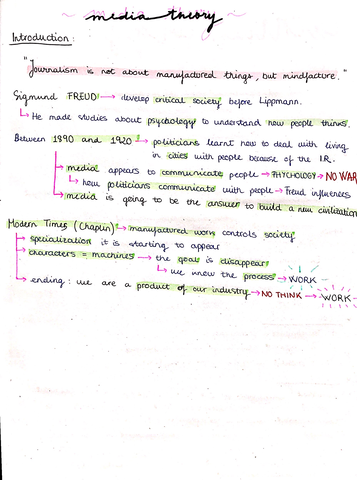 ~ media theory ~
Introduction:
"Journalism is not about manufactured things, but mindfacture."
Sigmund FREUD → develop critical society before Lippmann.
↳ He made studies about psychology to understand how people thinks.
Between 1890 and 1920 → politicians learnt new to deal with living
in cities with people because of the I.R.
→ media appears to communicate people → PHYCHOLOGY → NO WAR
↳ how politicians communicate with people → Freud influences
→ media is going to be the answer to build a new civilization
Modern Times (Chaplin) → manufactured work controls society
→ specialization it is starting to appear
→ characters = machines → the goal is disappear
↳ we knew the process → WORK
→ ending: we are a product of our industry → NO THINK → WORK